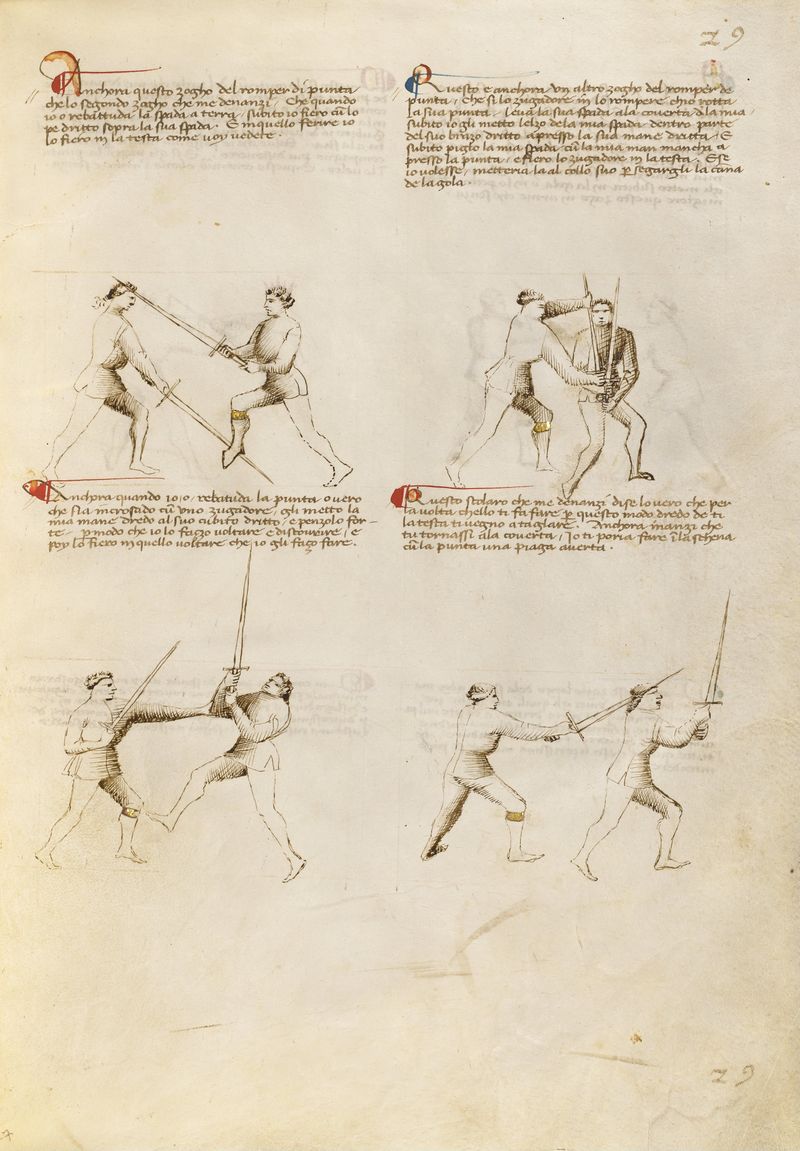 29
Anchora questo zogho del romper di punta
che lo segondo zogho che me denanzi. Che quando
io o rebattuda la spada a terra, subito io fiero cū lo
pe dritto sopra la sua spada. E in quello ferire io
lo fiero in la testa come voy vedete.
Questo e anchora un altro zogho del romper de
punta, che si lo zugadore in lo rompere ch'io rotta
la sua punta, leva la sua spada ala coverta de la mia
subito io gli metto l'elzo de la mia spada dentro parte
del suo brazo dritto apresso la sua mane dritta, E
subito piglo la mia spada cū la mia man mancha a
presso la punta, e fiero lo zugadore in la testa. E se
io volesse, metteria la al collo suo p segargli la cana
de la gola.
Anchora quando io o rebatuda la punta, o vero
che sia incrosado cū uno zugadore, gli metto la
mia mane dredo al suo cubito dritto, e penzolo for-
te, p modo che io lo fazzo voltare e discovrire, e
poy lo fiero in quello voltare che io gli fazo fare.
Questo scolaro che me denanzi dise lo vero che per
la volta ch'ello ti fa fare p questo modo dredo de ti
la testa ti vegno a taglare. Anchora inanzi che
tu tornassi ala coverta, Io ti poria fare ī la schena
cū la punta una piaga averta.
29